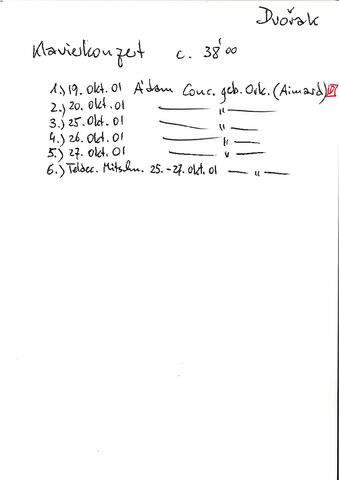 Dvořák
Klavierkonzert c. 38'00
1.) 19. Okt. 01 Ádám Conc. geb. Ork. (Aimard)
2.) 20. Okt. 01 — " —
3.) 25. Okt. 01 — " —
4.) 26. Okt. 01 — " —
5.) 27. Okt. 01 — " —
6.) Teldec. Mitschn. 25.-27. Okt. 01 — " —